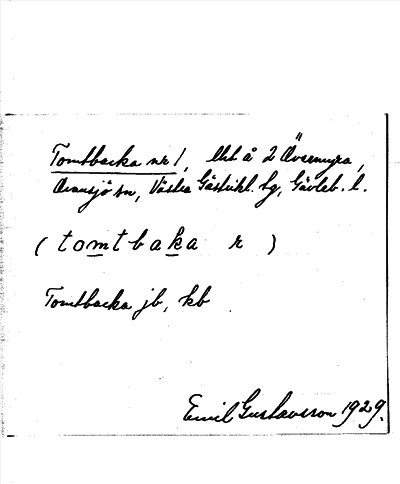 Tomtbacka nr 1, lht å 2 Övermyra,
Årsunda sn, Västra Gästrikl. tg, Gävleb. l.
( tomtbaka r )
Tomtbacka jb, kb
Emil Gustavsson 1929.